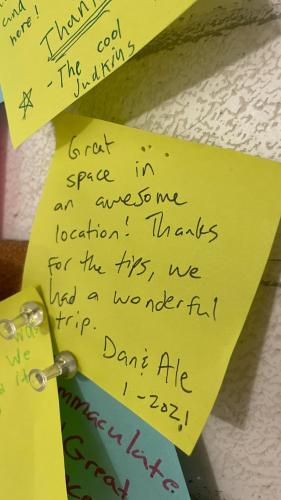 and
here!
Thank
- The cool
Judkins
Great
space in
an awesome
location! Thanks
for the tips, we
had a wonderful
trip.
Dan & Ale
1-2021
we
it
mmaculate
Great